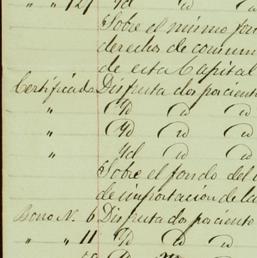 " " 127 Yd Yd
Sobre el mismo fon
derechos de consum
de esta Capital
Certificado Disfruta dos porciento
" Yd Yd Yd
" Yd Yd Yd
" Yd Yd Yd
Sobre el fondo del
de importacion de la
Bono N. 6 Disfruta dos porciento
" " 11 Yd Yd Yd